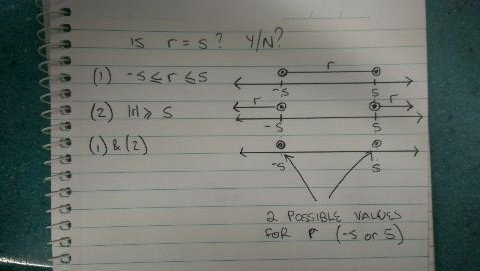 is r = s? Y/N?
(1) -s ≤ r ≤ s
r
-s s
(2) |r| ≥ s
r r
-s s
(1) & (2)
-s s
2 POSSIBLE VALUES
FOR r (-s or s)